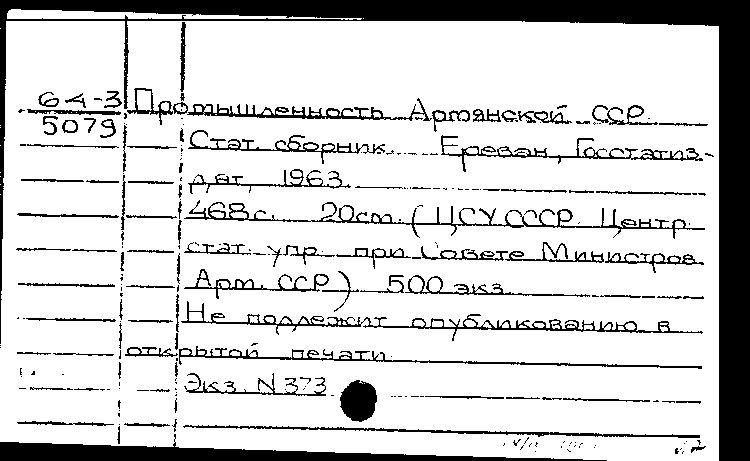 64-3 Промышленность Армянской ССР.
5079
Стат. сборник. Ереван, Госстатиз-
дат, 1963.
468с. 20см. (ЦСУ СССР. Центр.
стат. упр. при Совете Министров
Арм. ССР) 500 экз.
Не подлежит опубликованию в
открытой печати
Экз. N 373